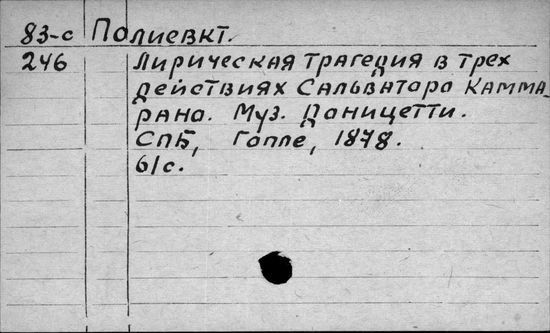 83-с Полиевкт.
246 Лирическая трагедия в трех
действиях Сальватора Камма-
рано. Муз. Даницетти.
СПБ, Гоппе, 1878.
61с.